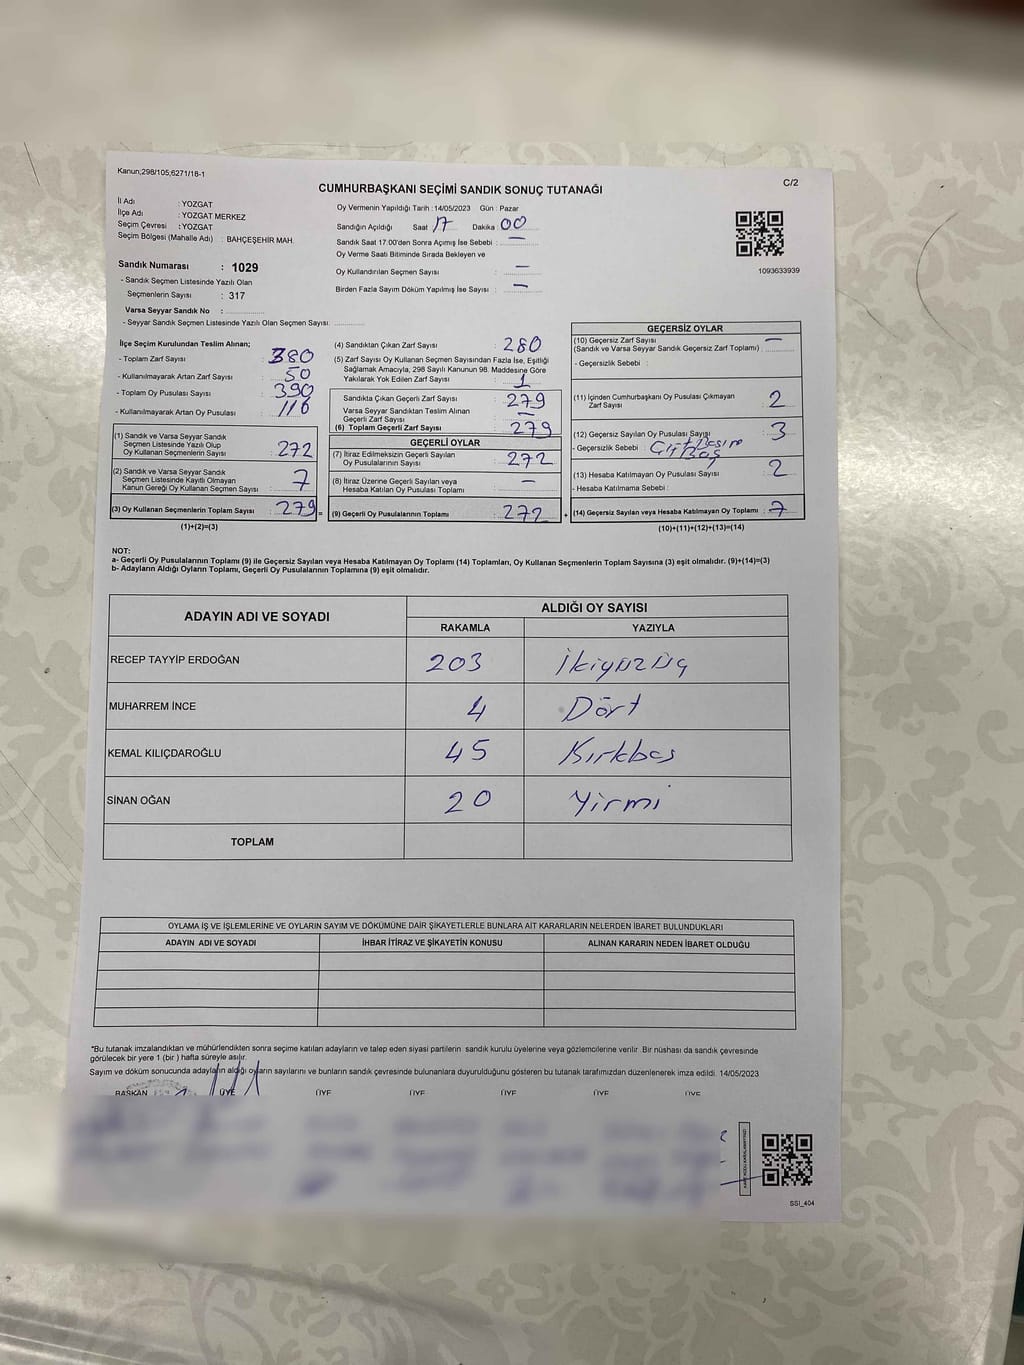 Kanun;298/105;6271/18-1
C/2
CUMHURBAŞKANI SEÇİMİ SANDIK SONUÇ TUTANAĞI
İl Adı : YOZGAT
İlçe Adı : YOZGAT MERKEZ
Seçim Çevresi : YOZGAT
Seçim Bölgesi (Mahalle Adı) : BAHÇEŞEHİR MAH.
Sandık Numarası : 1029
- Sandık Seçmen Listesinde Yazılı Olan
Seçmenlerin Sayısı : 317
Varsa Seyyar Sandık No :
- Seyyar Sandık Seçmen Listesinde Yazılı Olan Seçmen Sayısı:
Oy Vermenin Yapıldığı Tarih : 14/05/2023 Gün : Pazar
Sandığın Açıldığı Saat 17 Dakika 00
Sandık Saat 17.00'den Sonra Açımış İse Sebebi : —
Oy Verme Saati Bitiminde Sırada Bekleyen ve
Oy Kullandırılan Seçmen Sayısı : —
Birden Fazla Sayım Döküm Yapılmış İse Sayısı : —
1093633939
İlçe Seçim Kurulundan Teslim Alınan;
- Toplam Zarf Sayısı : 380
- Kullanılmayarak Artan Zarf Sayısı : 50
- Toplam Oy Pusulası Sayısı : 390
- Kullanılmayarak Artan Oy Pusulası : 116
(1) Sandık ve Varsa Seyyar Sandık
Seçmen Listesinde Yazılı Olup
Oy Kullanan Seçmenlerin Sayısı : 272
(2) Sandık ve Varsa Seyyar Sandık
Seçmen Listesinde Kayıtlı Olmayan
Kanun Gereği Oy Kullanan Seçmen Sayısı : 7
(3) Oy Kullanan Seçmenlerin Toplam Sayısı : 279 =
(1)+(2)=(3)
(4) Sandıktan Çıkan Zarf Sayısı : 280
(5) Zarf Sayısı Oy Kullanan Seçmen Sayısından Fazla İse, Eşitliği
Sağlamak Amacıyla, 298 Sayılı Kanunun 98. Maddesine Göre
Yakılarak Yok Edilen Zarf Sayısı : 1
Sandıkta Çıkan Geçerli Zarf Sayısı : 279
Varsa Seyyar Sandıktan Teslim Alınan
Geçerli Zarf Sayısı : —
(6) Toplam Geçerli Zarf Sayısı : 279
GEÇERLİ OYLAR
(7) İtiraz Edilmeksizin Geçerli Sayılan
Oy Pusulalarının Sayısı : 272
(8) İtiraz Üzerine Geçerli Sayılan veya
Hesaba Katılan Oy Pusulası Toplamı : —
(9) Geçerli Oy Pusulalarının Toplamı : 272 +
GEÇERSİZ OYLAR
(10) Geçersiz Zarf Sayısı
(Sandık ve Varsa Seyyar Sandık Geçersiz Zarf Toplamı) : —
- Geçersizlik Sebebi :
(11) İçinden Cumhurbaşkanı Oy Pusulası Çıkmayan
Zarf Sayısı : 2
(12) Geçersiz Sayılan Oy Pusulası Sayısı : 3
- Geçersizlik Sebebi :
(13) Hesaba Katılmayan Oy Pusulası Sayısı : 2
- Hesaba Katılmama Sebebi :
(14) Geçersiz Sayılan veya Hesaba Katılmayan Oy Toplamı : 7
(10)+(11)+(12)+(13)=(14)
NOT:
a- Geçerli Oy Pusulalarının Toplamı (9) ile Geçersiz Sayılan veya Hesaba Katılmayan Oy Toplamı (14) Toplamları, Oy Kullanan Seçmenlerin Toplam Sayısına (3) eşit olmalıdır. (9)+(14)=(3)
b- Adayların Aldığı Oyların Toplamı, Geçerli Oy Pusulalarının Toplamına (9) eşit olmalıdır.
ADAYIN ADI VE SOYADI
ALDIĞI OY SAYISI
RAKAMLA YAZIYLA
RECEP TAYYİP ERDOĞAN 203 İkiyüzüç
MUHARREM İNCE 4 Dört
KEMAL KILIÇDAROĞLU 45 Kırkbeş
SİNAN OĞAN 20 Yirmi
TOPLAM
OYLAMA İŞ VE İŞLEMLERİNE VE OYLARIN SAYIM VE DÖKÜMÜNE DAİR ŞİKAYETLERLE BUNLARA AİT KARARLARIN NELERDEN İBARET BULUNDUKLARI
ADAYIN ADI VE SOYADI İHBAR İTİRAZ VE ŞİKAYETİN KONUSU ALINAN KARARIN NEDEN İBARET OLDUĞU
*Bu tutanak imzalandıktan ve mühürlendikten sonra seçime katılan adayların ve talep eden siyasi partilerin sandık kurulu üyelerine veya gözlemcilerine verilir. Bir nüshası da sandık çevresinde
görülecek bir yere 1 (bir ) hafta süreyle asılır.
Sayım ve döküm sonucunda adayların aldığı oyların sayılarını ve bunların sandık çevresinde bulunanlara duyurulduğunu gösteren bu tutanak tarafımızdan düzenlenerek imza edildi. 14/05/2023
BAŞKAN ÜYE ÜYE ÜYE ÜYE ÜYE ÜYE
SSI_404